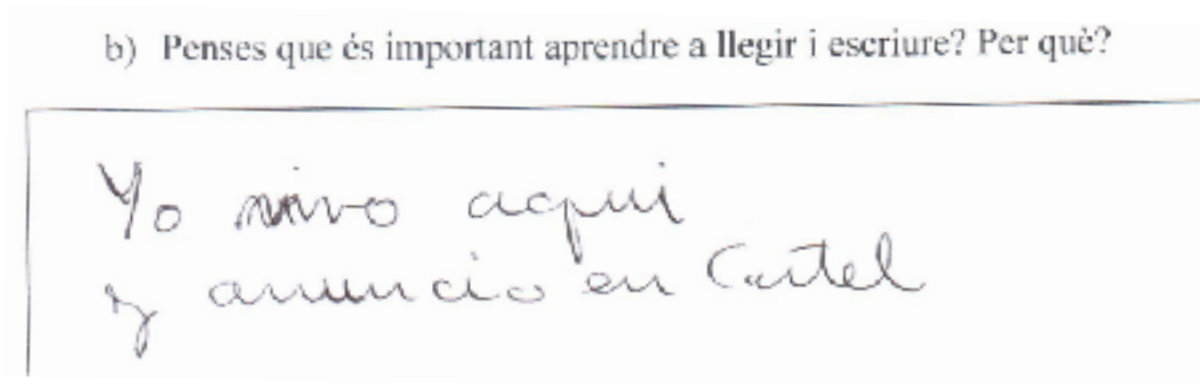 b) Penses que és important aprendre a llegir i escriure? Per què?
Yo vivo aqui
y anuncio en Cartel